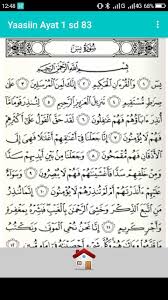 12:48
Yaasiin Ayat 1 sd 83
سُورَةُ يس
بِسْمِ اللَّهِ الرَّحْمٰنِ الرَّحِيمِ
يسٓ ﴿١﴾ وَالْقُرْءَانِ الْحَكِيمِ ﴿٢﴾ إِنَّكَ لَمِنَ الْمُرْسَلِينَ ﴿٣﴾ عَلَى
صِرَاطٍ مُسْتَقِيمٍ ﴿٤﴾ تَنْزِيلَ الْعَزِيزِ الرَّحِيمِ ﴿٥﴾ لِتُنْذِرَ قَوْمًا
مَا أُنْذِرَ ءَابَاؤُهُمْ فَهُمْ غَافِلُونَ ﴿٦﴾ لَقَدْ حَقَّ الْقَوْلُ عَلَى
أَكْثَرِهِمْ فَهُمْ لَا يُؤْمِنُونَ ﴿٧﴾ إِنَّا جَعَلْنَا فِي أَعْنَاقِهِمْ أَغْلَالًا
فَهِيَ إِلَى الْأَذْقَانِ فَهُمْ مُقْمَحُونَ ﴿٨﴾ وَجَعَلْنَا مِنْ بَيْنِ أَيْدِيهِمْ سَدًّا
وَمِنْ خَلْفِهِمْ سَدًّا فَأَغْشَيْنَاهُمْ فَهُمْ لَا يُبْصِرُونَ ﴿٩﴾ وَسَوَاءٌ عَلَيْهِمْ
ءَأَنْذَرْتَهُمْ أَمْ لَمْ تُنْذِرْهُمْ لَا يُؤْمِنُونَ ﴿١٠﴾ إِنَّمَا تُنْذِرُ مَنِ
اتَّبَعَ الذِّكْرَ وَخَشِيَ الرَّحْمٰنَ بِالْغَيْبِ فَبَشِّرْهُ بِمَغْفِرَةٍ وَ
أَجْرٍ كَرِيمٍ ﴿١١﴾ إِنَّا نَحْنُ نُحْيِ الْمَوْتَى وَنَكْتُبُ مَا قَدَّمُوا